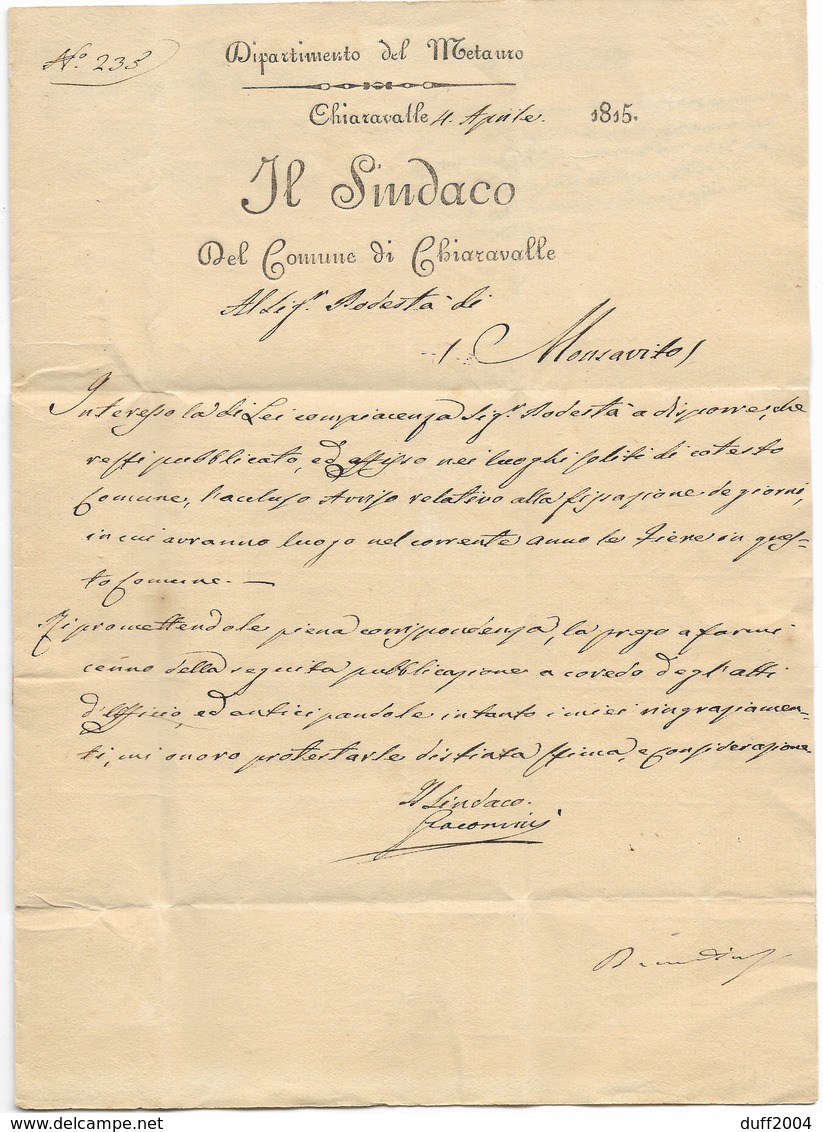 N.° 233
Dipartimento del Metauro
Chiaravalle 4. Aprile. 1815.
Il Sindaco
Del Comune di Chiaravalle
Al Sig.r Podestà di
Monsavito
Interesso la di Lei compiacenza Sig.r Podestà a disporre, che
resti pubblicato, ed affisso nei luoghi soliti di cotesto
Comune, l'accluso Avviso relativo alla fissazione de giorni,
in cui avranno luogo nel corrente anno le Fiere in ques-
to Comune. —
Ripromettendole piena corrispondenza, la prego a farmi
cenno della seguita pubblicazione a coredo degl'atti
d'Officio, ed anticipandole intanto i miei ringraziamen-
ti, mi onoro protestarle distinta stima, e considerazione
Il Sindaco.
Giacomini
delcampe.net
duff2004